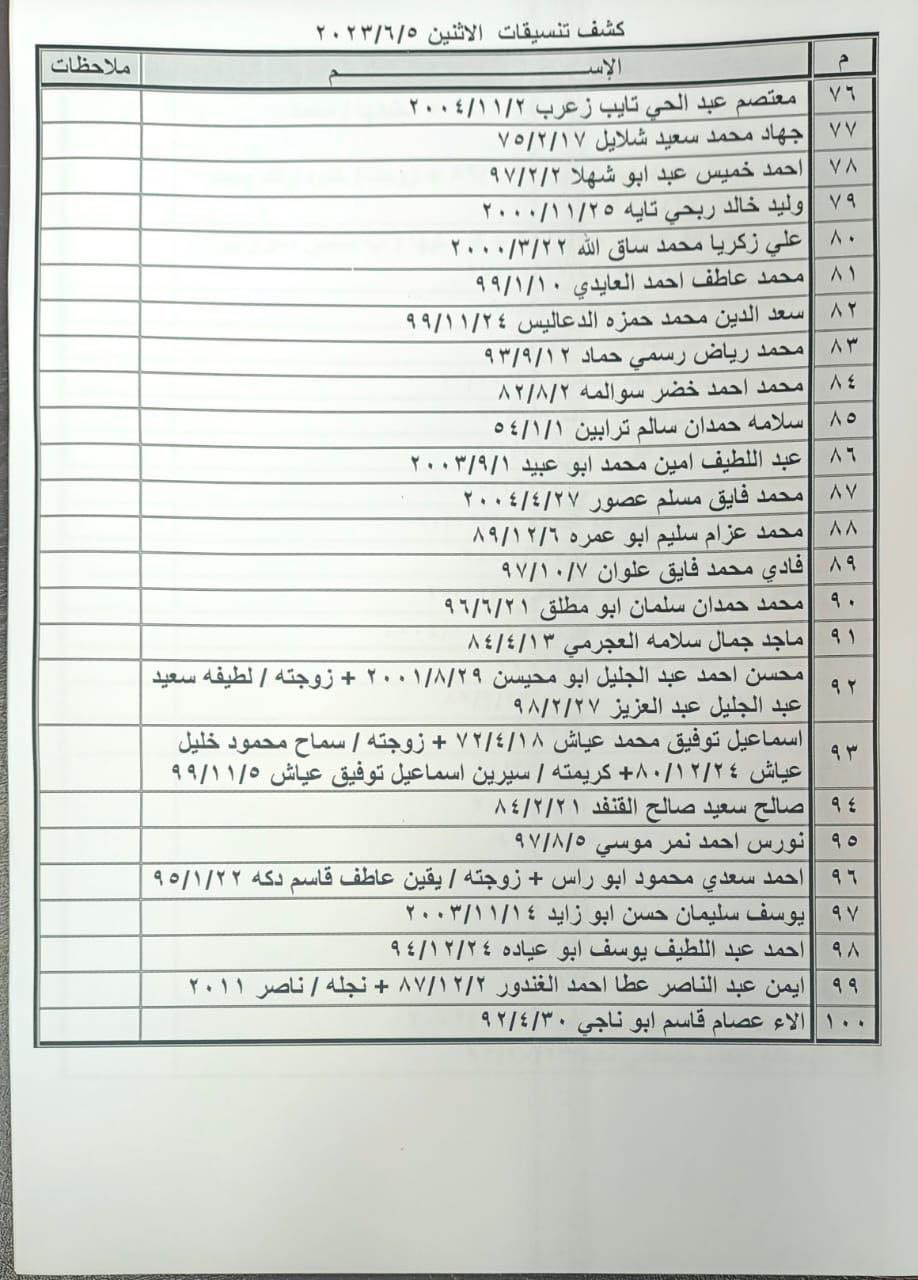 كشف تنسيقات الاثنين ٢٠٢٣/٦/٥
م الإســـــــــم ملاحظات
٧٦ معتصم عبد الحي تايب زعرب ٢٠٠٤/١١/٢
٧٧ جهاد محمد سعيد شلايل ٧٥/٢/١٧
٧٨ احمد خميس عبد ابو شهلا ٩٧/٢/٢
٧٩ وليد خالد ربحي تايه ٢٠٠٠/١١/٢٥
٨٠ علي زكريا محمد ساق الله ٢٠٠٠/٣/٢٢
٨١ محمد عاطف احمد العايدي ٩٩/١/١٠
٨٢ سعد الدين محمد حمزه الدعاليس ٩٩/١١/٢٤
٨٣ محمد رياض رسمي حماد ٩٣/٩/١٢
٨٤ محمد احمد خضر سوالمه ٨٢/٨/٢
٨٥ سلامه حمدان سالم ترابين ٥٤/١/١
٨٦ عبد اللطيف امين محمد ابو عبيد ٢٠٠٣/٩/١
٨٧ محمد فايق مسلم عصور ٢٠٠٤/٤/٢٧
٨٨ محمد عزام سليم ابو عمره ٨٩/١٢/٦
٨٩ فادي محمد فايق علوان ٩٧/١٠/٧
٩٠ محمد حمدان سلمان ابو مطلق ٩٦/٦/٢١
٩١ ماجد جمال سلامه العجرمي ٨٤/٤/١٣
٩٢ محسن احمد عبد الجليل ابو محيسن ٢٠٠١/٨/٢٩ + زوجته / لطيفه سعيد
عبد الجليل عبد العزيز ٩٨/٢/٢٧
٩٣ اسماعيل توفيق محمد عياش ٧٢/٤/١٨ + زوجته / سماح محمود خليل
عياش ٨٠/١٢/٢٤+ كريمته / سيرين اسماعيل توفيق عياش ٩٩/١١/٥
٩٤ صالح سعيد صالح القنفد ٨٤/٢/٢١
٩٥ نورس احمد نمر موسي ٩٧/٨/٥
٩٦ احمد سعدي محمود ابو راس + زوجته / يقين عاطف قاسم دكه ٩٥/١/٢٢
٩٧ يوسف سليمان حسن ابو زايد ٢٠٠٣/١١/١٤
٩٨ احمد عبد اللطيف يوسف ابو عياده ٩٤/١٢/٢٤
٩٩ ايمن عبد الناصر عطا احمد الغندور ٨٧/١٢/٢ + نجله / ناصر ٢٠١١
١٠٠ الاء عصام قاسم ابو ناجي ٩٢/٤/٣٠